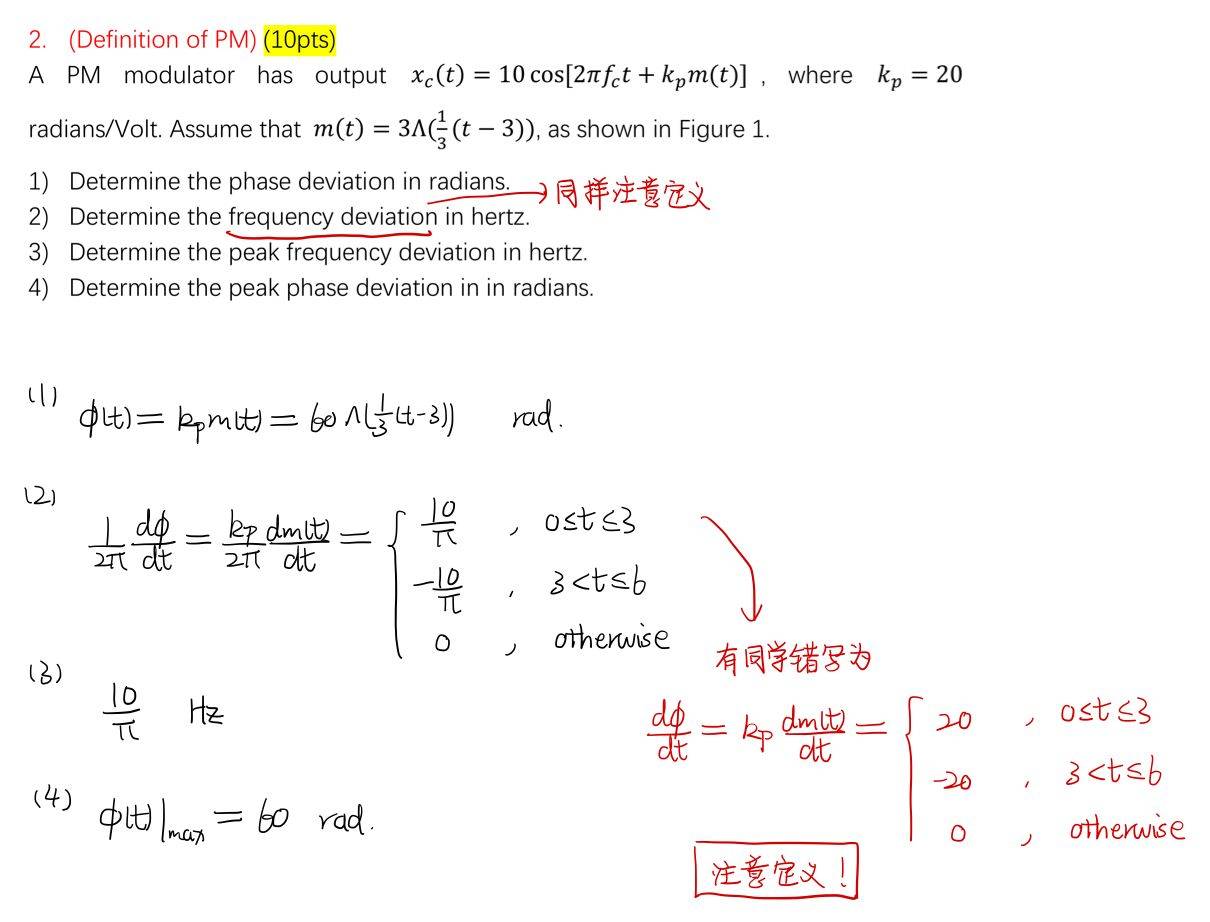 2. (Definition of PM) (10pts)
A PM modulator has output x_c(t) = 10 cos[2πf_ct + k_pm(t)] , where k_p = 20
radians/Volt. Assume that m(t) = 3Λ(1/3(t − 3)), as shown in Figure 1.
1) Determine the phase deviation in radians.
→ 同样注意定义
2) Determine the frequency deviation in hertz.
3) Determine the peak frequency deviation in hertz.
4) Determine the peak phase deviation in in radians.
(1) ϕ(t) = k_pm(t) = 60 Λ(1/3(t-3)) rad.
(2) 1/2π dϕ/dt = k_p/2π dm(t)/dt = { 10/π , 0≤t≤3
-10/π , 3<t≤6
0 , otherwise
有同学错写为
(3) 10/π Hz
dϕ/dt = k_p dm(t)/dt = { 20 , 0≤t≤3
-20 , 3<t≤6
0 , otherwise
(4) ϕ(t)|max = 60 rad.
注意定义!